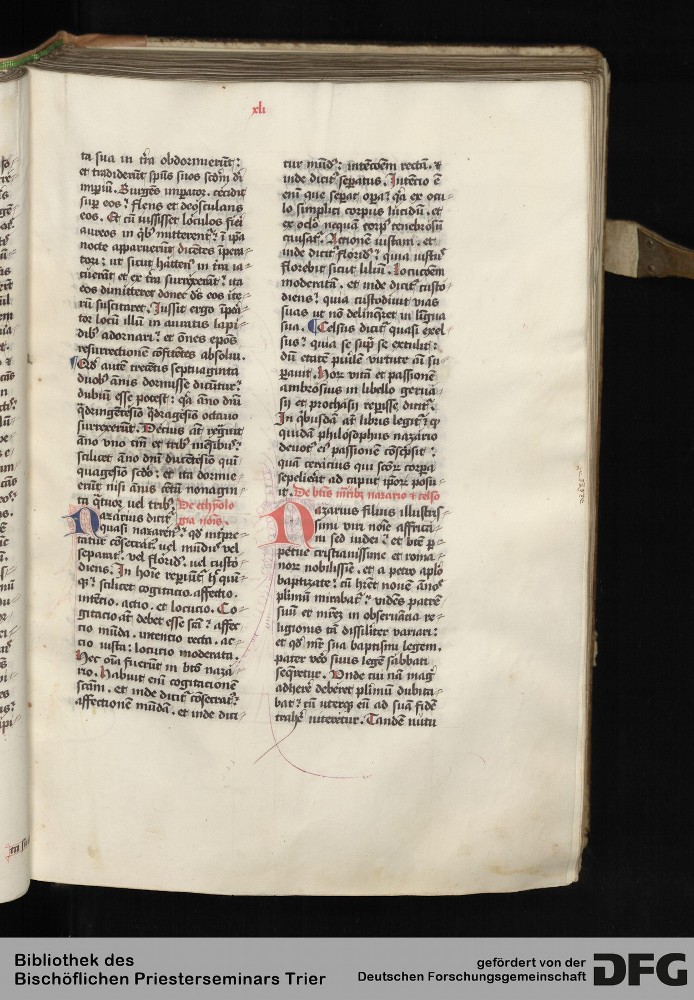 xli
ta sua in tra obdormierūt:
et tradiderūt spūs suos scdm di
impiū. Surgēs impator. cecidit
sup eos: flens et deosculans
eos. Et cū iussisset loculos fiei
aureos in qb mitterent: i ipa
nocte apparuerūt dicētes ipera
tori: ut sicut hacten in tra ia
cuerūt et ex tra surrexerūt: ita
eos dimitteret donec dns eos ite
rū suscitaret. Jussit ergo ipera
tor locū illū in auratis lapi
dib adornari: et omnes epos
resurrectionem cōfitētes absolui.
Qd autē trecētis septuaginta
duob annis dormisse dicūtur:
dubiū esse potest: qa anno dni
qdringētesio qdragesio octauo
surrexerūt. Decius autē regnauit
anno vno tm et trib mēsibus:
scilicet anno dni ducētesio qui
quagesio scdo: et ita dormie
rūt nisi annis centū nonagin
ta qtuor uel trib. De ethymolo
gia nōis.
Nazarius dicit
quasi nazaren: qd inpre
tatur cōsecrat. uel mūdus vel
separat. vel florid. uel custo
diens. In hoie reperiūt hec qui
q: scilicet cogitacio. affectio.
intētio. actio. et locucio. Co
gitacio aūt debet esse scā: affec
tio mūda. intentio recta. ac
tio iusta: locutio moderata.
Hec oīa fuerūt in bto naza
rio. Habuit enī cogitacionē
scām. et inde dicit cōsecrat:
affectionem mūdā. et inde dici
tur mūd: intētōem rectā. et
inde dicit sepatus. Intētio ē
enī que sepat opa: qa ex ocu
lo simplici corpus lucidū. et
ex oclo nequā corp tenebrosū
causat. Actionē iustam. et
inde dicit florid: quia iustus
florebit sicut liliū. Locutōem
moderatā. et inde dicit custo
diens: quia custodiuit vias
suas ut nō delinqret in lingua
sua. Celsus dicit quasi excel
sus: quia se sup se extulit:
dū etatē puilē virtute ai su
pauit. Hor vitā et passionē
ambrosius in libello gerua
sij et prothasij repisse dicit.
In qbusdā aūt libris legit: q
quidā philosophus nazario
deuot ei passionē cōscpsit:
quā ceracius qui scor corpa
sepelierat ad caput ipor posu
it. De btis mrib nazario et celso
Nazarius filius illustris
simi viri noie affrica
ni sed iudei: et bte p
petue cristianissime et roma
nor nobilissie. et a petro aplo
baptizate: cū hret nouē ānos
plimū mirabat: vidēs patrē
suū et mrem in obseruācia re
ligionis tā dissiliter variari:
et qd mr sua baptismi legem.
pater vero suus legē sabbati
seqretur. Unde cui nam magis
adhere deberet plimū dubita
bat: cū uterque eū ad suā fidē
trahe niteretur. Tandē nutu
Bibliothek des
Bischöflichen Priesterseminars Trier
gefördert von der
Deutschen Forschungsgemeinschaft
DFG